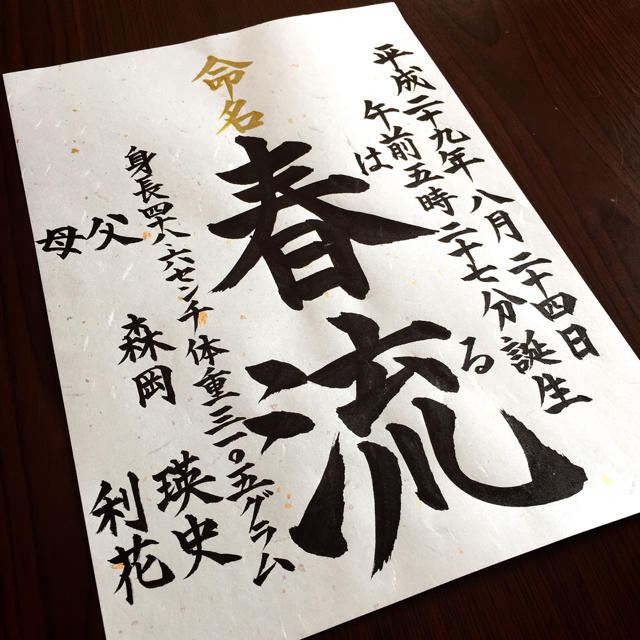 平成二十九年 八月 二十四日
午前五時二十七分 誕生
は る
命名
春流
身長四十八、六センチ 体重三一〇五グラム
父 森岡 瑛史
母 利花